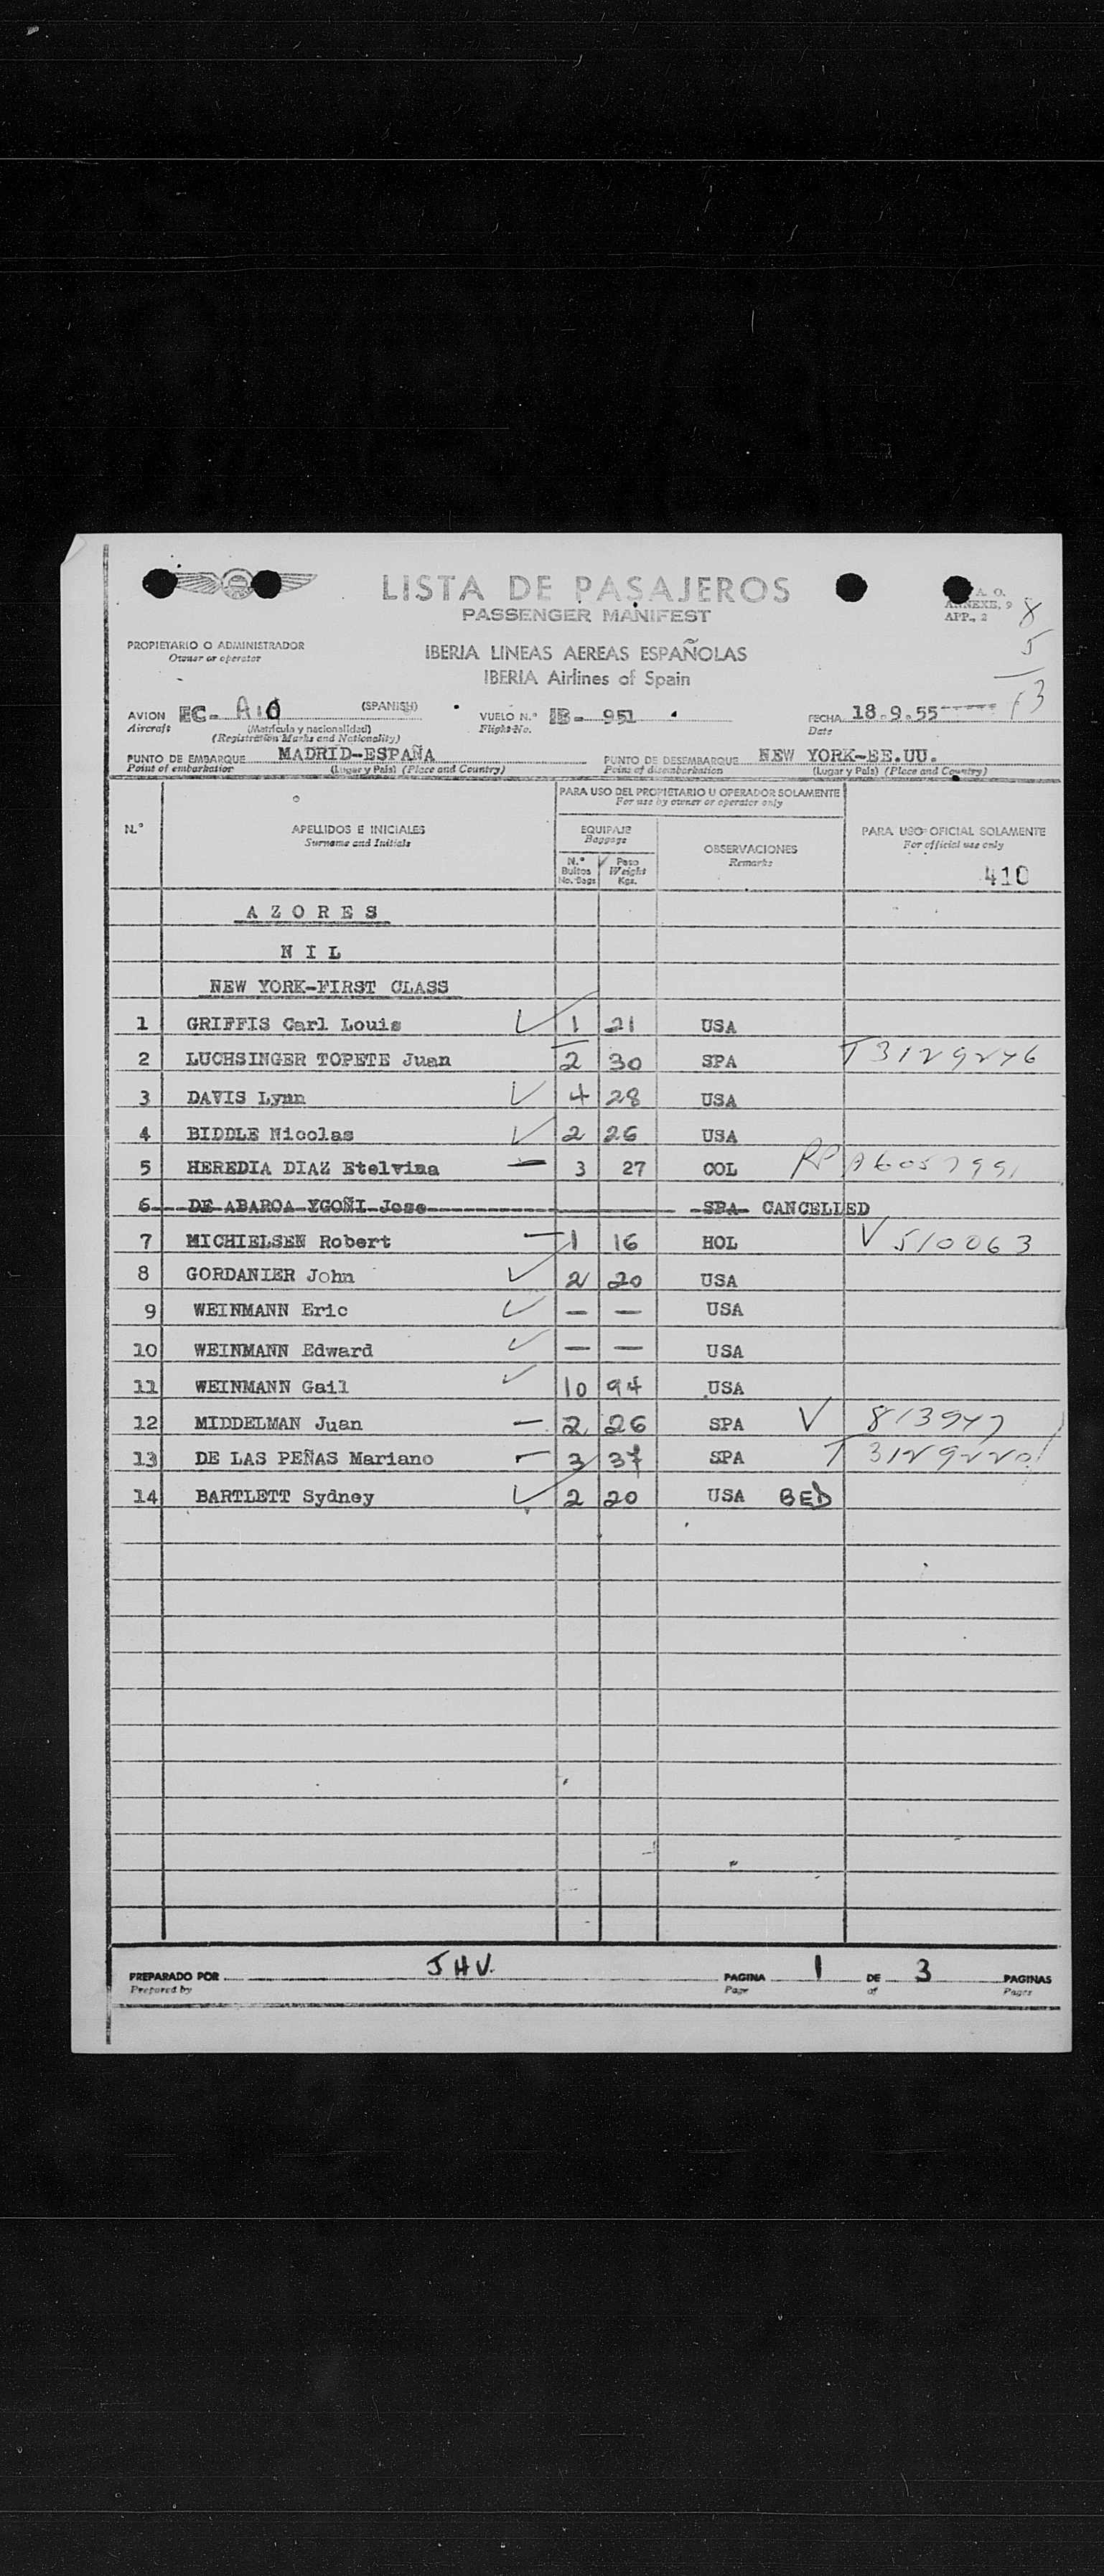 LISTA DE PASAJEROS
PASSENGER MANIFEST
A. O.
ANNEXE. 9
APP., 2
8
5
13
PROPIETARIO O ADMINISTRADOR
Owner or operator
IBERIA LINEAS AEREAS ESPAÑOLAS
IBERIA Airlines of Spain
AVION EC- (SPANISH) VUELO N.º IB- 951 FECHA 18.9.55
Aircraft (Matrícula y nacionalidad) Flight-No. Date
(Registration Marks and Nationality)
PUNTO DE EMBARQUE MADRID-ESPAÑA PUNTO DE DESEMBARQUE NEW YORK-EE.UU.
Point of embarkation (Lugar y País) (Place and Country) Point of disembarkation (Lugar y País) (Place and Country)
PARA USO DEL PROPIETARIO U OPERADOR SOLAMENTE
For use by owner or operator only
N.º APELLIDOS E INICIALES EQUIPAJE OBSERVACIONES PARA USO OFICIAL SOLAMENTE
Surname and Initials Baggage Remarks For official use only
N.º Bultos No. Bags Peso Weight Kgs. 410
A Z O R E S
N I L
NEW YORK-FIRST CLASS
1 GRIFFIS Carl Louis 1 21 USA
2 LUCHSINGER TOPETE Juan 2 30 SPA T 3129246
3 DAVIS Lynn 4 28 USA
4 BIDDLE Nicolas 2 26 USA
5 HEREDIA DIAZ Etelvina 3 27 COL RP A6057991
6 DE ABAROA YGOÑI Jose SPA CANCELLED
7 MICHIELSEN Robert 1 16 HOL V 510063
8 GORDANIER John 2 20 USA
9 WEINMANN Eric — — USA
10 WEINMANN Edward — — USA
11 WEINMANN Gail 10 94 USA
12 MIDDELMAN Juan 2 26 SPA V 813947
13 DE LAS PEÑAS Mariano 3 37 SPA T 3129220
14 BARTLETT Sydney 2 20 USA BED
PREPARADO POR JHV. PAGINA 1 DE 3 PAGINAS
Prepared by Page of Pages